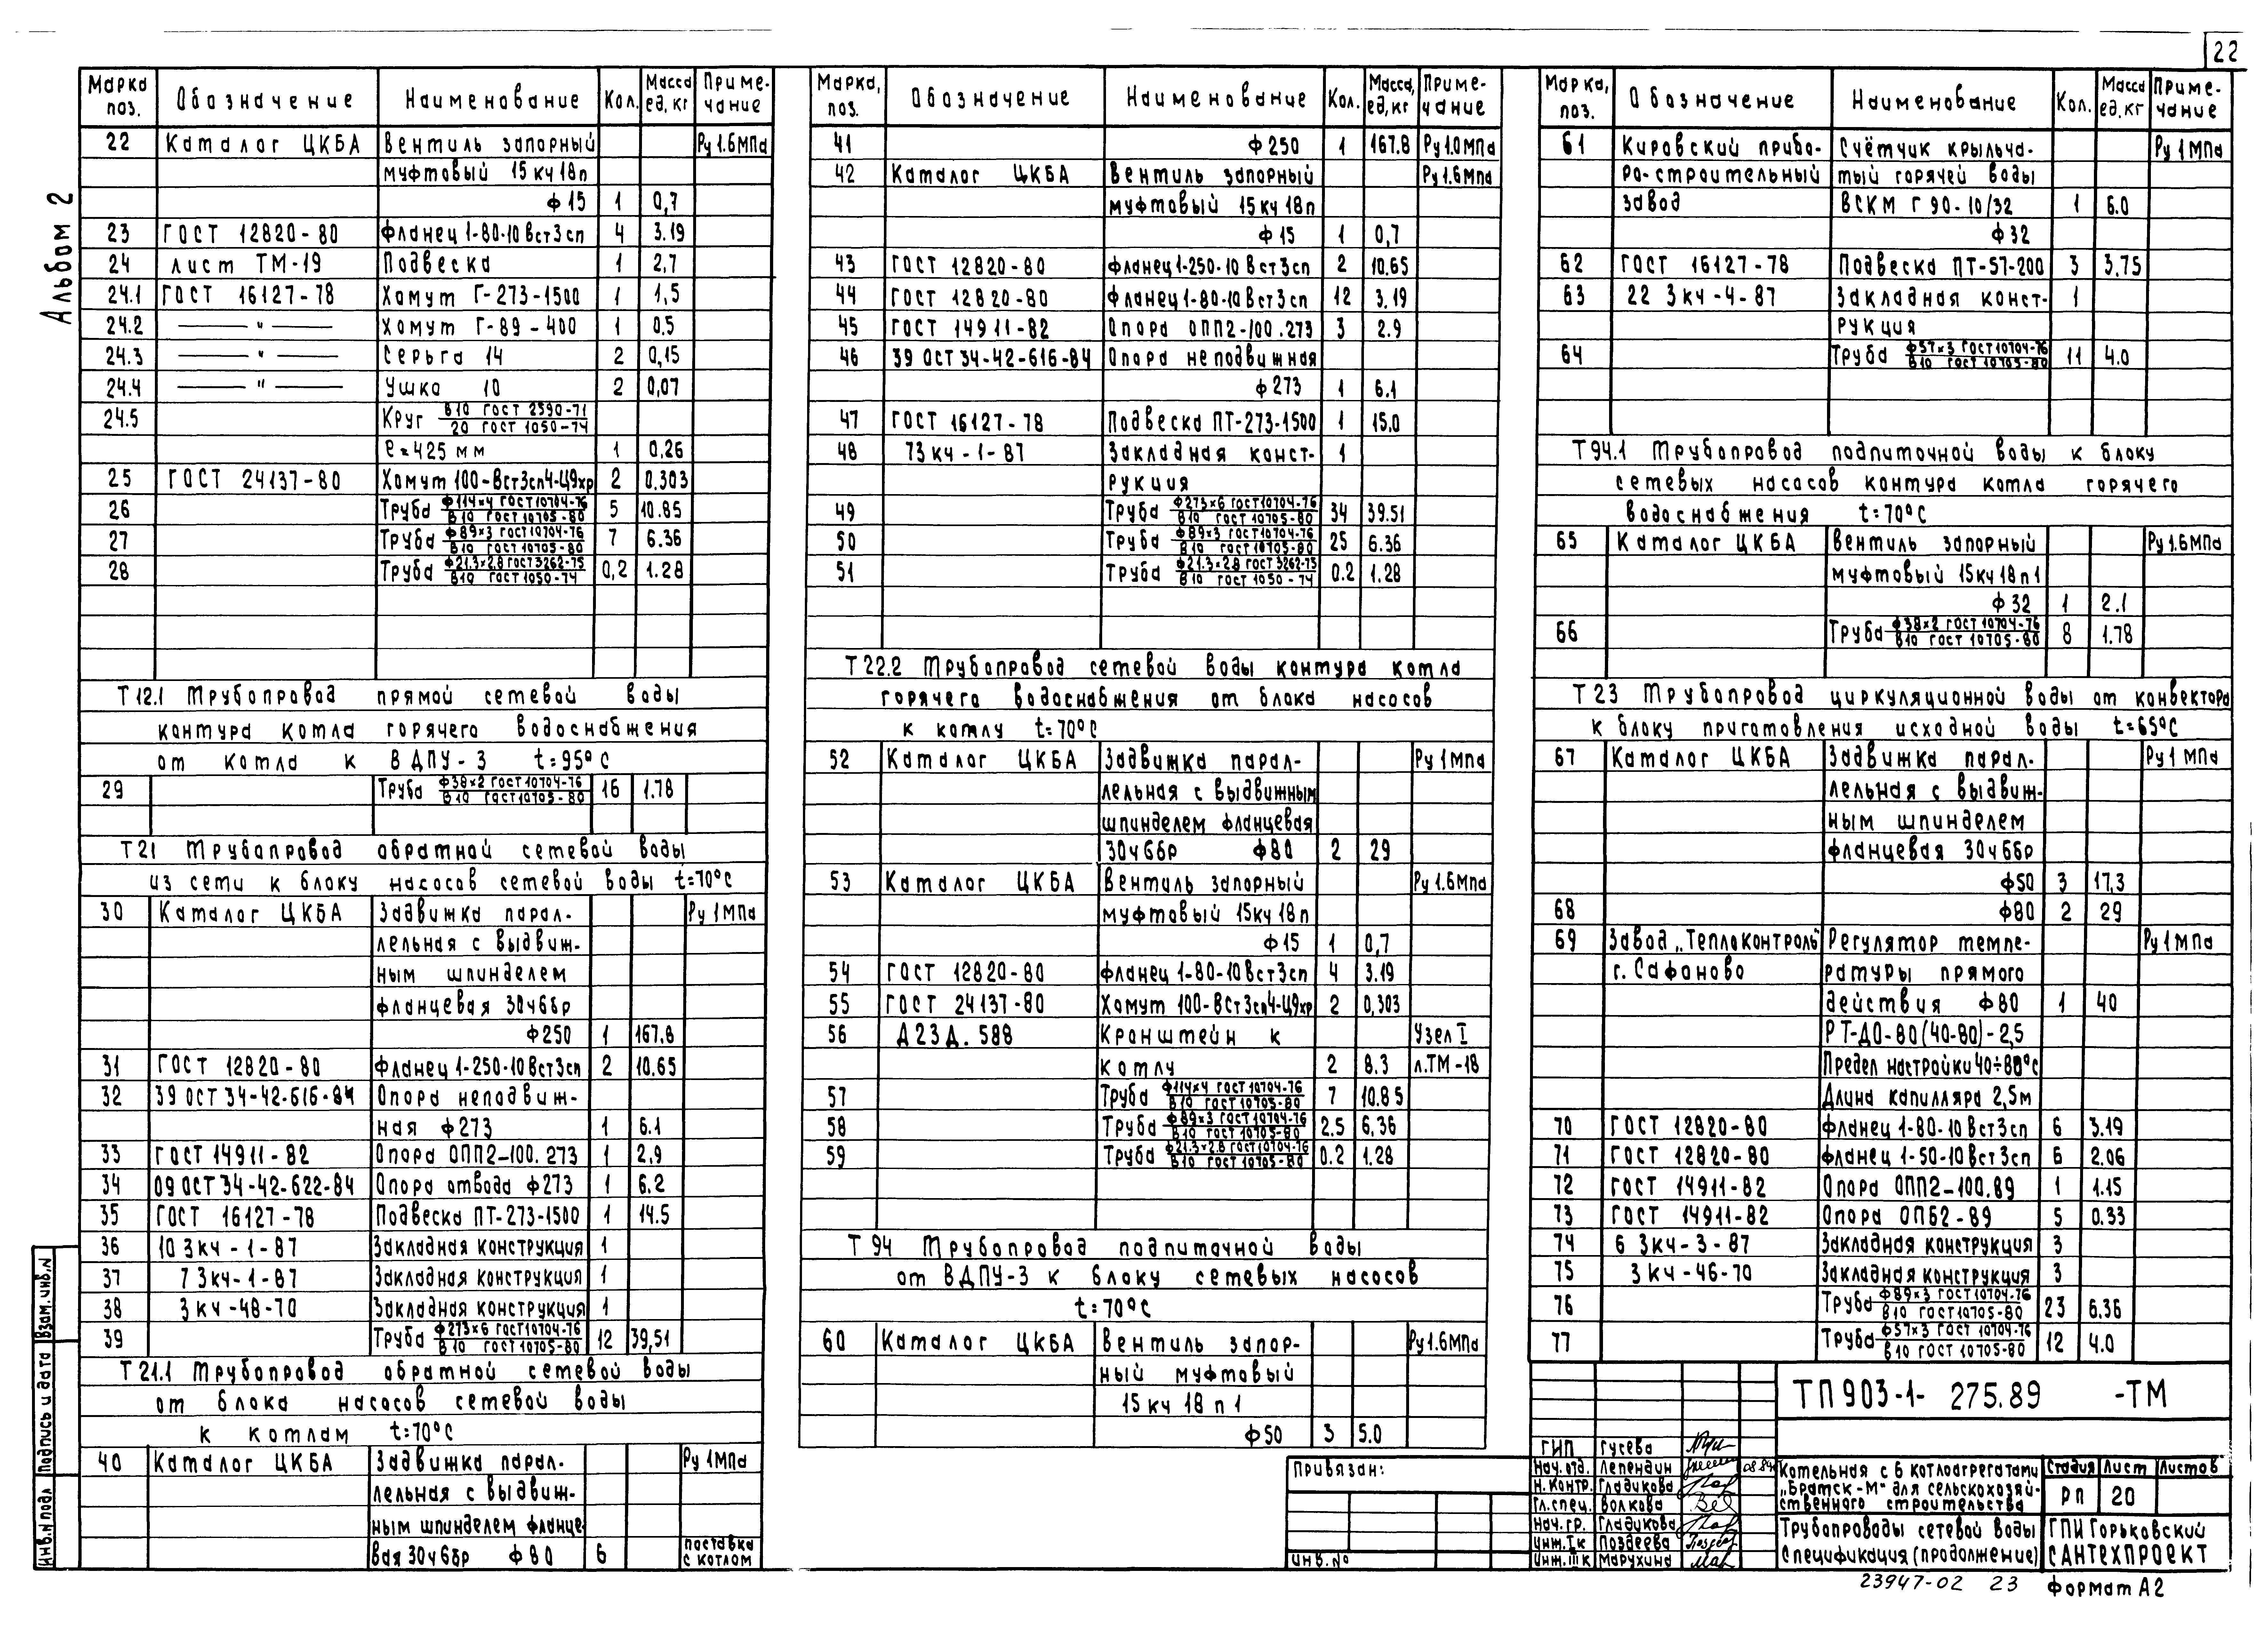 22
Альбом 2
Марка поз. Обозначение Наименование Кол. Масса ед, кг Приме-чание
22 Каталог ЦКБА Вентиль запорный Ру 1.6МПа
муфтовый 15кч18п
ф15 1 0,7
23 ГОСТ 12820-80 Фланец 1-80-10 Вст3сп 4 3.19
24 лист ТМ-19 Подвеска 1 2,7
24.1 ГОСТ 16127-78 Хомут Г-273-1500 1 1,5
24.2 —"— Хомут Г-89-400 1 0.5
24.3 —"— Серьга 14 2 0,15
24.4 —"— Ушко 10 2 0,07
24.5 Круг В10 ГОСТ 2590-71 / 20 ГОСТ 1050-74
ℓ=425 мм 1 0,26
25 ГОСТ 24137-80 Хомут 100-Вст3сп4-Ц9хр 2 0.303
26 Труба ф114×4 ГОСТ10704-76 / В10 ГОСТ 10705-80 5 10.85
27 Труба ф89×3 ГОСТ10704-76 / В10 ГОСТ10705-80 7 6.36
28 Труба ф21.3×2.8 ГОСТ3262-75 / В10 ГОСТ 1050-74 0,2 1.28
Т12.1 Трубопровод прямой сетевой воды
контура котла горячего водоснабжения
от котла к ВДПУ-3 t=95°С
29 Труба ф38×2 ГОСТ10704-76 / В10 ГОСТ10705-80 16 1.78
Т21 Трубопровод обратной сетевой воды
из сети к блоку насосов сетевой воды t=70°С
30 Каталог ЦКБА Задвижка парал- Ру 1МПа
лельная с выдвиж-
ным шпинделем
фланцевая 30ч6бр
ф250 1 167.8
31 ГОСТ 12820-80 Фланец 1-250-10 Вст3сп 2 10.65
32 39 ОСТ 34-42-616-84 Опора неподвиж-
ная ф273 1 6.1
33 ГОСТ 14911-82 Опора ОПП2-100.273 1 2,9
34 09 ОСТ 34-42-622-84 Опора отвода ф273 1 6.2
35 ГОСТ 16127-78 Подвеска ПТ-273-1500 1 14.5
36 10 3кч-1-87 Закладная конструкция 1
37 7 3кч-1-87 Закладная конструкция 1
38 3кч-48-70 Закладная конструкция 1
39 Труба ф273×6 ГОСТ10704-76 / В10 ГОСТ10705-80 12 39,51
Т21.1 Трубопровод обратной сетевой воды
от блока насосов сетевой воды
к котлам t=70°С
40 Каталог ЦКБА Задвижка парал- Ру 1МПа
лельная с выдвиж-
ным шпинделем фланце-
вая 30ч6бр ф80 6 поставка с котлом
Марка, поз. Обозначение Наименование Кол. Масса, ед, кг Приме-чание
41 ф250 1 167.8 Ру1.0МПа
42 Каталог ЦКБА Вентиль запорный Ру1.6МПа
муфтовый 15кч18п
ф15 1 0,7
43 ГОСТ 12820-80 Фланец 1-250-10 Вст3сп 2 10.65
44 ГОСТ 12820-80 Фланец 1-80-10 Вст3сп 12 3.19
45 ГОСТ 14911-82 Опора ОПП2-100.273 3 2.9
46 39 ОСТ 34-42-616-84 Опора неподвижная
ф273 1 6.1
47 ГОСТ 16127-78 Подвеска ПТ-273-1500 1 15.0
48 73кч-1-87 Закладная конст- 1
рукция
49 Труба ф273×6 ГОСТ10704-76 / В10 ГОСТ10705-80 34 39.51
50 Труба ф89×3 ГОСТ10704-76 / В10 ГОСТ10705-80 25 6.36
51 Труба ф21.3×2.8 ГОСТ3262-75 / В10 ГОСТ 1050-74 0.2 1.28
Т22.2 Трубопровод сетевой воды контура котла
горячего водоснабжения от блока насосов
к котлу t=70°С
52 Каталог ЦКБА Задвижка парал- Ру 1МПа
лельная с выдвижным
шпинделем фланцевая
30ч6бр ф80 2 29
53 Каталог ЦКБА Вентиль запорный Ру1.6МПа
муфтовый 15кч18п
ф15 1 0,7
54 ГОСТ 12820-80 Фланец 1-80-10 Вст3сп 4 3.19
55 ГОСТ 24137-80 Хомут 100-Вст3сп4-Ц9хр 2 0,303
56 А23Д.588 Кронштейн к Узел I
котлу 2 8.3 л.ТМ-18
57 Труба ф114×4 ГОСТ10704-76 / В10 ГОСТ10705-80 7 10.85
58 Труба ф89×3 ГОСТ10704-76 / В10 ГОСТ10705-80 2.5 6,36
59 Труба ф21.3×2.8 ГОСТ10704-76 / В10 ГОСТ10705-80 0.2 1.28
Т 94 Трубопровод подпиточной воды
от ВДПУ-3 к блоку сетевых насосов
t=70°С
60 Каталог ЦКБА Вентиль запор- Ру1.6МПа
ный муфтовый
15кч18п1
ф50 3 5.0
Марка, поз. Обозначение Наименование Кол. Масса ед, кг Приме-чание
61 Кировский прибо- Счётчик крыльча- Ру 1МПа
ро-строительный тый горячей воды
завод ВСКМ Г 90-10/32 1 6.0
ф32
62 ГОСТ 16127-78 Подвеска ПТ-57-200 3 3,75
63 22 3кч-4-87 Закладная конст- 1
рукция
64 Труба ф57×3 ГОСТ10704-76 / В10 ГОСТ10705-80 11 4.0
Т94.1 Трубопровод подпиточной воды к блоку
сетевых насосов контура котла горячего
водоснабжения t=70°С
65 Каталог ЦКБА Вентиль запорный Ру1.6МПа
муфтовый 15кч18п1
ф32 1 2.1
66 Труба ф38×2 ГОСТ10704-76 / В10 ГОСТ10705-80 8 1.78
Т23 Трубопровод циркуляционной воды от конвектора
к блоку приготовления исходной воды t=65°С
67 Каталог ЦКБА Задвижка парал- Ру1 МПа
лельная с выдвиж-
ным шпинделем
фланцевая 30ч6бр
ф50 3 17,3
68 ф80 2 29
69 Завод „Теплоконтроль" Регулятор темпе- Ру 1МПа
г. Сафоново ратуры прямого
действия ф80 1 40
РТ-ДО-80(40-80)-2,5
Предел настройки 40÷80°С
Длина капилляра 2,5м
70 ГОСТ 12820-80 Фланец 1-80-10 Вст3сп 6 3.19
71 ГОСТ 12820-80 Фланец 1-50-10 Вст3сп 6 2.06
72 ГОСТ 14911-82 Опора ОПП2-100.89 1 1.15
73 ГОСТ 14911-82 Опора ОПБ2-89 5 0.33
74 6 3кч-3-87 Закладная конструкция 3
75 3кч-46-70 Закладная конструкция 3
76 Труба ф89×3 ГОСТ10704-76 / В10 ГОСТ10705-80 23 6.36
77 Труба ф57×3 ГОСТ10704-76 / В10 ГОСТ10705-80 12 4.0
ТП 903-1- 275.89 -ТМ
ГИП Гусева
Нач. отд. Лепендин 08.84
Н. контр. Гладикова
Гл.спец. Волкова
Нач. гр. Гладикова
Инж. Iк Поздеева
Инж. IIIк Марухина
Котельная с 6 котлоагрегатами
„Братск-М" для сельскохозяй-
ственного строительства
Стадия Лист Листов
РП 20
Трубопроводы сетевой воды
Спецификация (продолжение)
ГПИ Горьковский
САНТЕХПРОЕКТ
Привязан:
Инв.№
Взам. инв.N
Подпись и дата
Инв.N подл
23947-02 23
Формат А2